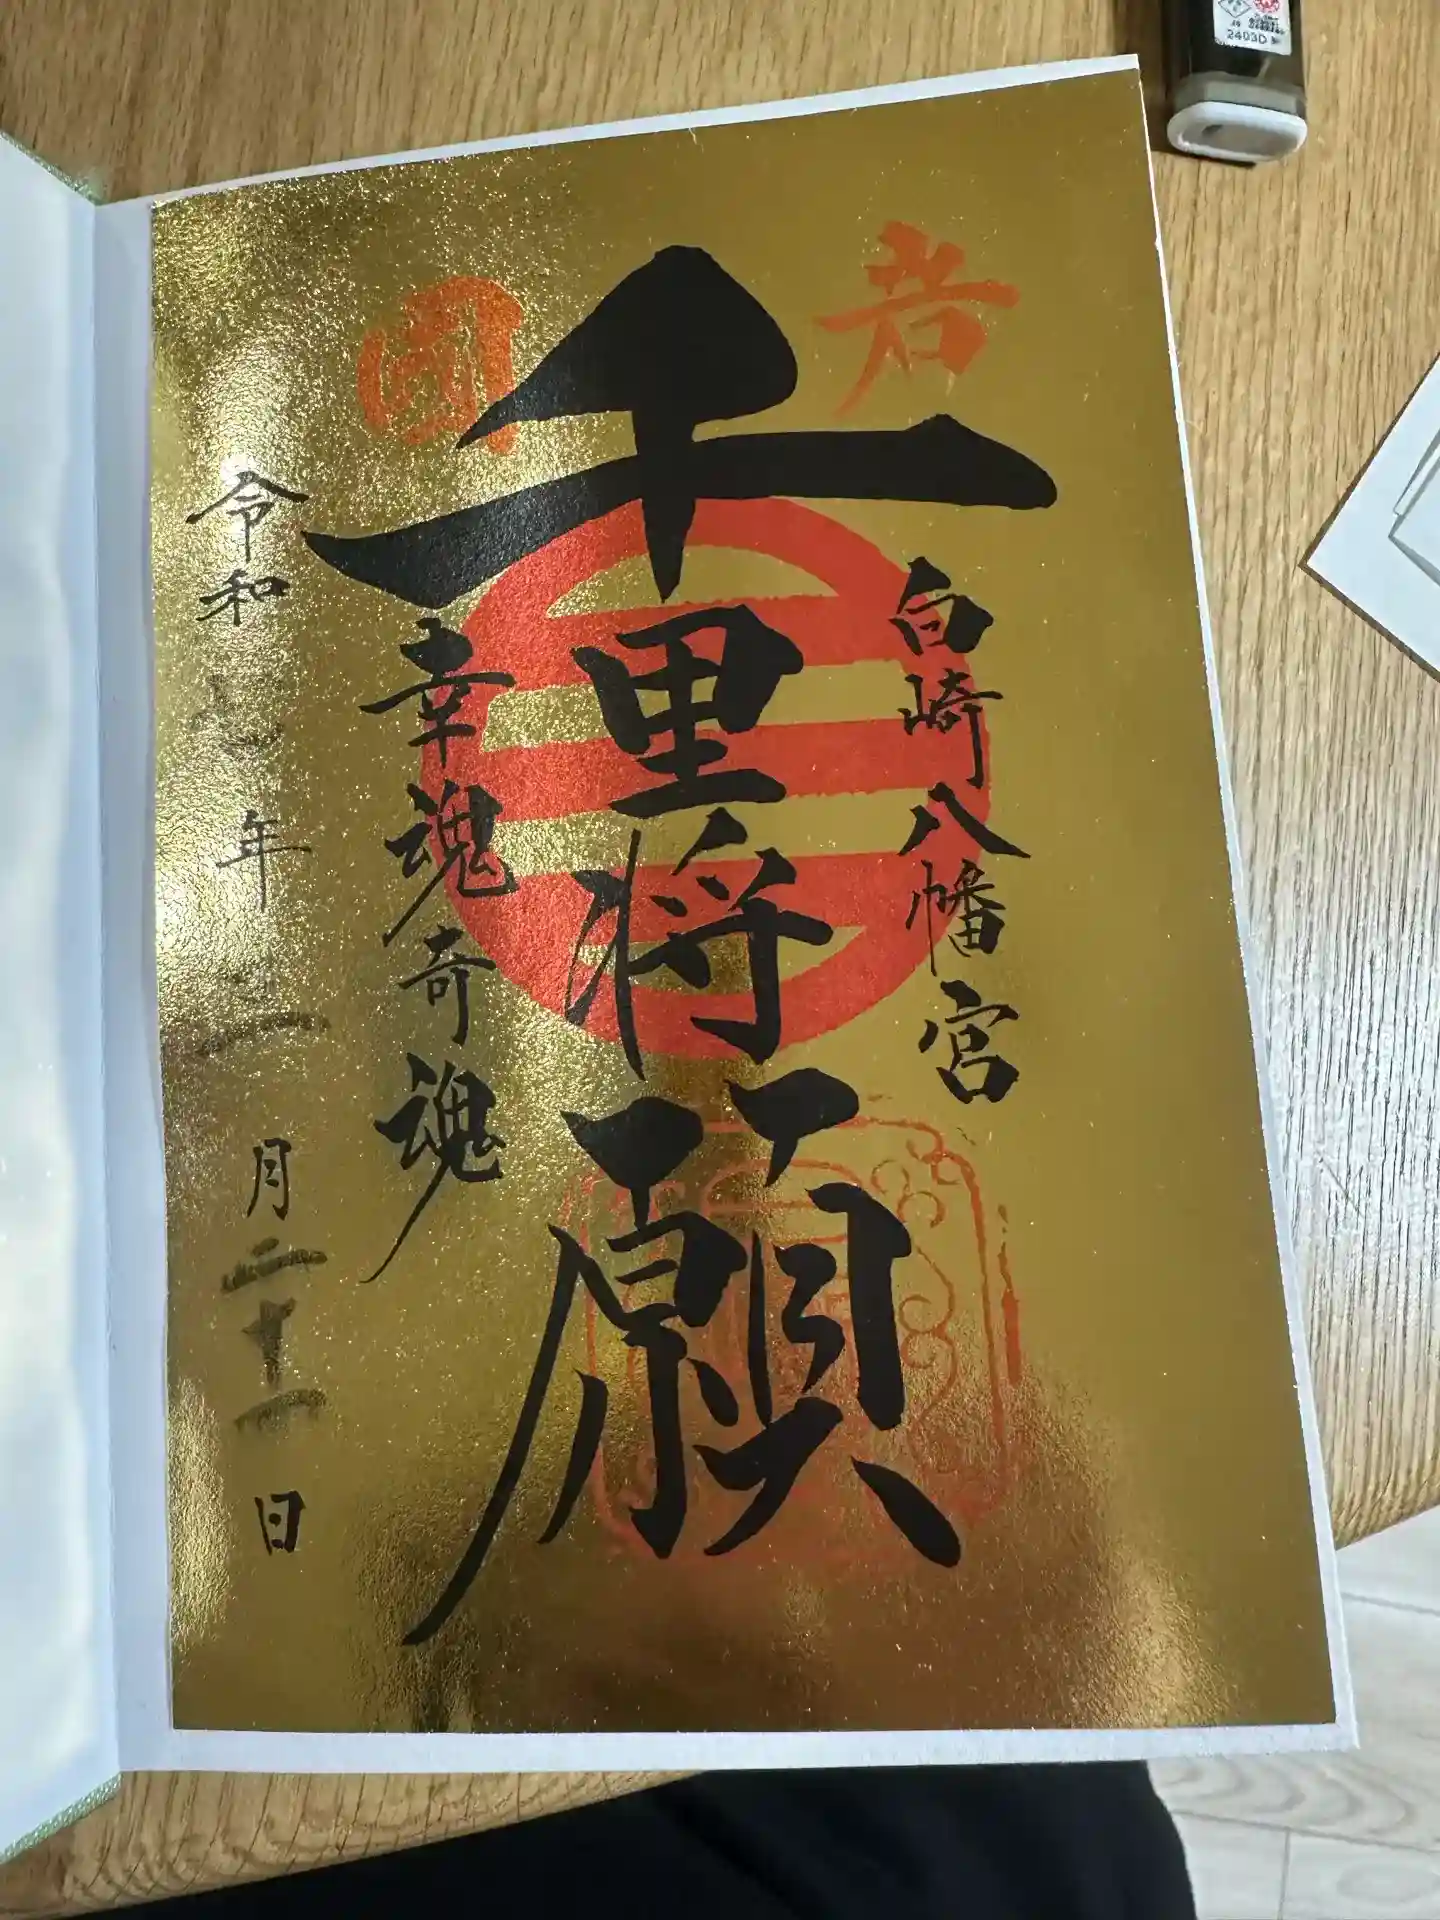 岩
国
白崎八幡宮
千里将願
幸魂奇魂
令和七年二月二十一日
2403D